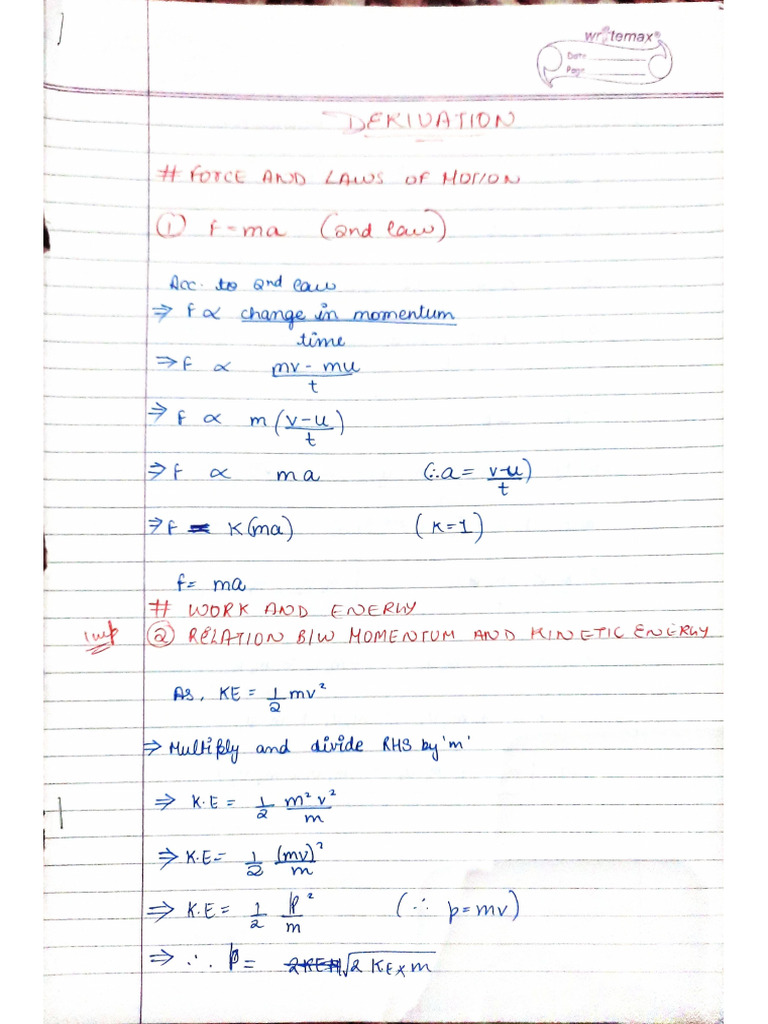 writemax
Date
Page
DERIVATION
# FORCE AND LAWS OF MOTION
① F=ma (2nd law)
Acc. to 2nd law
⇒ F ∝ change in momentum
time
⇒ F ∝ mv - mu
t
⇒ F ∝ m (v-u)
t
⇒ F ∝ ma (∴ a = v-u)
t
⇒ F = K(ma) (K=1)
F= ma
# WORK AND ENERGY
imp ② RELATION B/W MOMENTUM AND KINETIC ENERGY
As, KE = 1/2 mv²
⇒ Multiply and divide RHS by 'm'
⇒ K.E = 1/2 m²v²/m
⇒ K.E = 1/2 (mv)²/m
⇒ K.E = 1/2 p²/m (∴ p=mv)
⇒ ∴ p = √2 KE x m